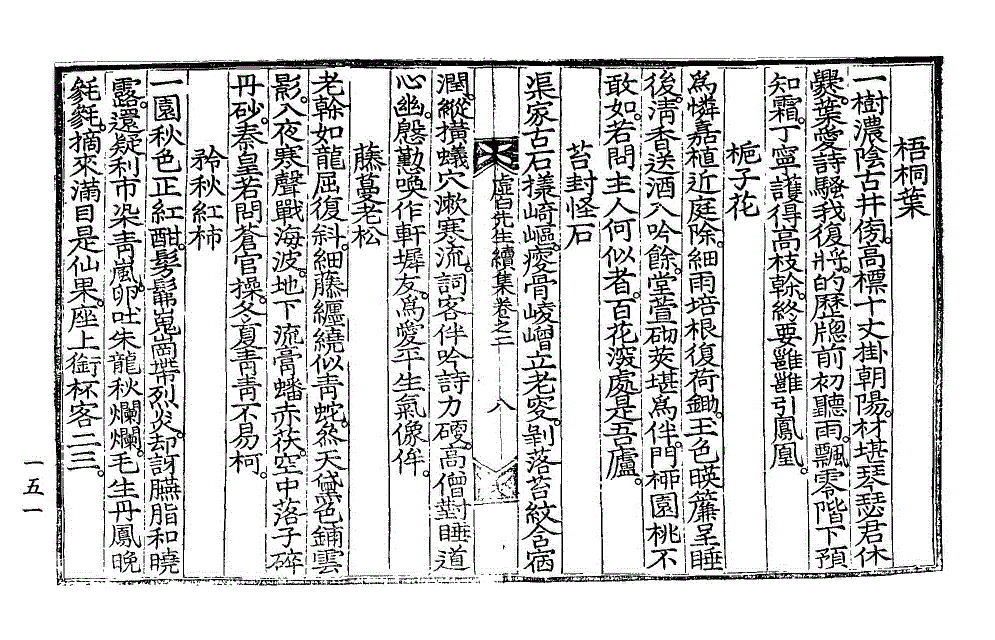 梧桐葉
一樹濃陰古井傍。高標十丈掛朝陽。材堪琴瑟君休
爨。葉愛詩騷我復將。的歷牕前初聽雨。飄零階下預
知霜。丁寧護得高枝榦。終要雝雝引鳳凰。
梔子花
爲憐嘉植近庭除。細雨培根復荷鋤。玉色暎簾呈睡
後。淸香送酒入吟餘。堂萱砌莢堪爲伴。門柳園桃不
敢如。若問主人何似者。百花深處是吾廬。
苔封怪石
渠家古石㨾崎嶇。瘦骨崚嶒立老叟。剝落苔紋含宿
虛白先生續集卷之二
八
潤。縱橫蟻穴漱寒流。詞客伴吟詩力硬。高僧對睡道
心幽。慇懃喚作軒墀友。爲愛平生氣像侔。
藤蔓老松
老榦如龍屈復斜。細藤纏繞似靑蛇。然天黛色鋪雲
影。入夜寒聲戰海波。地下流膏蟠赤茯。空中落子碎
丹砂。秦皇若問蒼官操。冬夏靑靑不易柯。
矜秋紅柿
一園秋色正紅酣。髣髴嵬崗帶烈炎。却訝臙脂和曉
露。還疑利市染靑風。卵吐朱龍秋爛爛。毛生丹鳳晩
毿毿。摘來滿目是仙果。座上銜杯客二三。
一五一